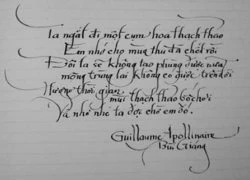 Ta ngắt đi một cụm hoa thạch thảo
Em nhớ cho mùa thu đã chết rồi
Đôi ta sẽ không tao phùng được nữa
mộng trùng lai không có được trên đời
Hương thời gian mùi thạch thảo bốc hơi
Và nhớ nhé ta đợi chờ em đó.
Guillaume Apollinaire
Bùi Giáng